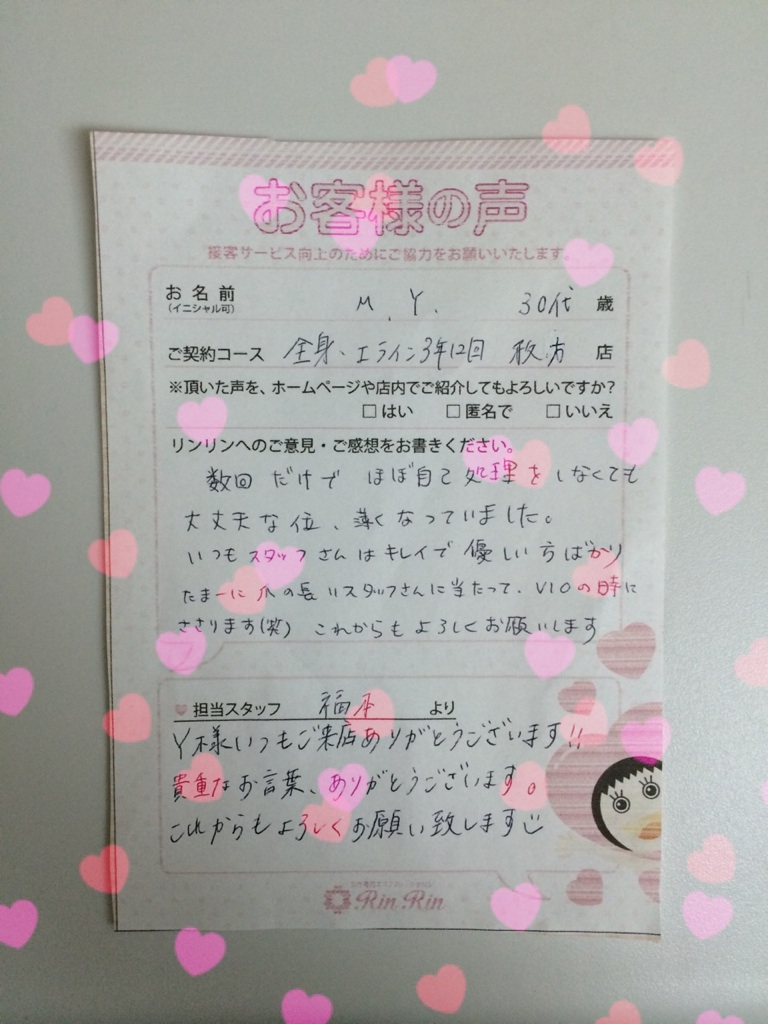 お客様の声
接客サービス向上のためにご協力をお願いいたします。
お名前 M.Y. 30代 歳
(イニシャル可)
ご契約コース 全身、エライン3年12回 枚方 店
※頂いた声を、ホームページや店内でご紹介してもよろしいですか?
□はい □匿名で □いいえ
リンリンへのご意見・ご感想をお書きください。
数回だけでほぼ自己処理をしなくても
大丈夫な位、薄くなっていました。
いつもスタッフさんはキレイで優しい方ばかり
たまーに爪の長いスタッフさんに当たって、VIOの時に
ささります(笑) これからもよろしくお願いします
担当スタッフ 福本 より
Y様いつもご来店ありがとうございます!!
貴重なお言葉、ありがとうございます。
これからもよろしくお願い致します
Rin Rin